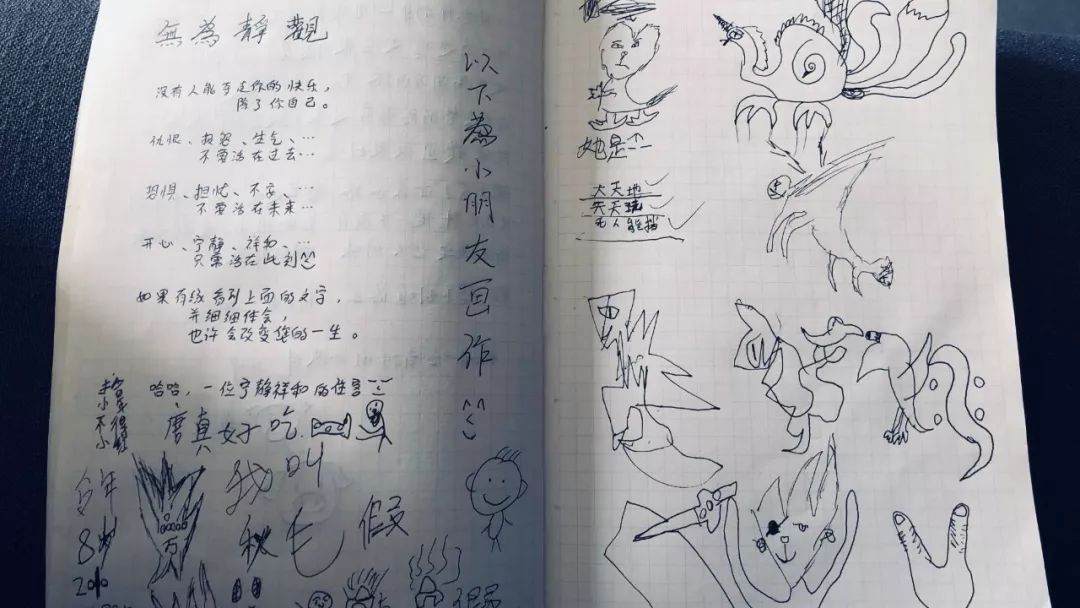 無為靜觀
没有人能夺走你的快乐，
除了你自己。
仇恨、抱怨、生气、…
不要活在过去…
恐惧、担忧、不安、…
不要活在未来…
开心、宁静、祥和、…
只需活在此刻
如果有缘看到上面的文字，
并细细体会，
也许会改变您的一生。
哈哈，一位宁静祥和的住客
以下為小朋友画作
真好吃
我叫
秋毛
假
今年
8岁
2010
页
她是个
大天地
无人能挡